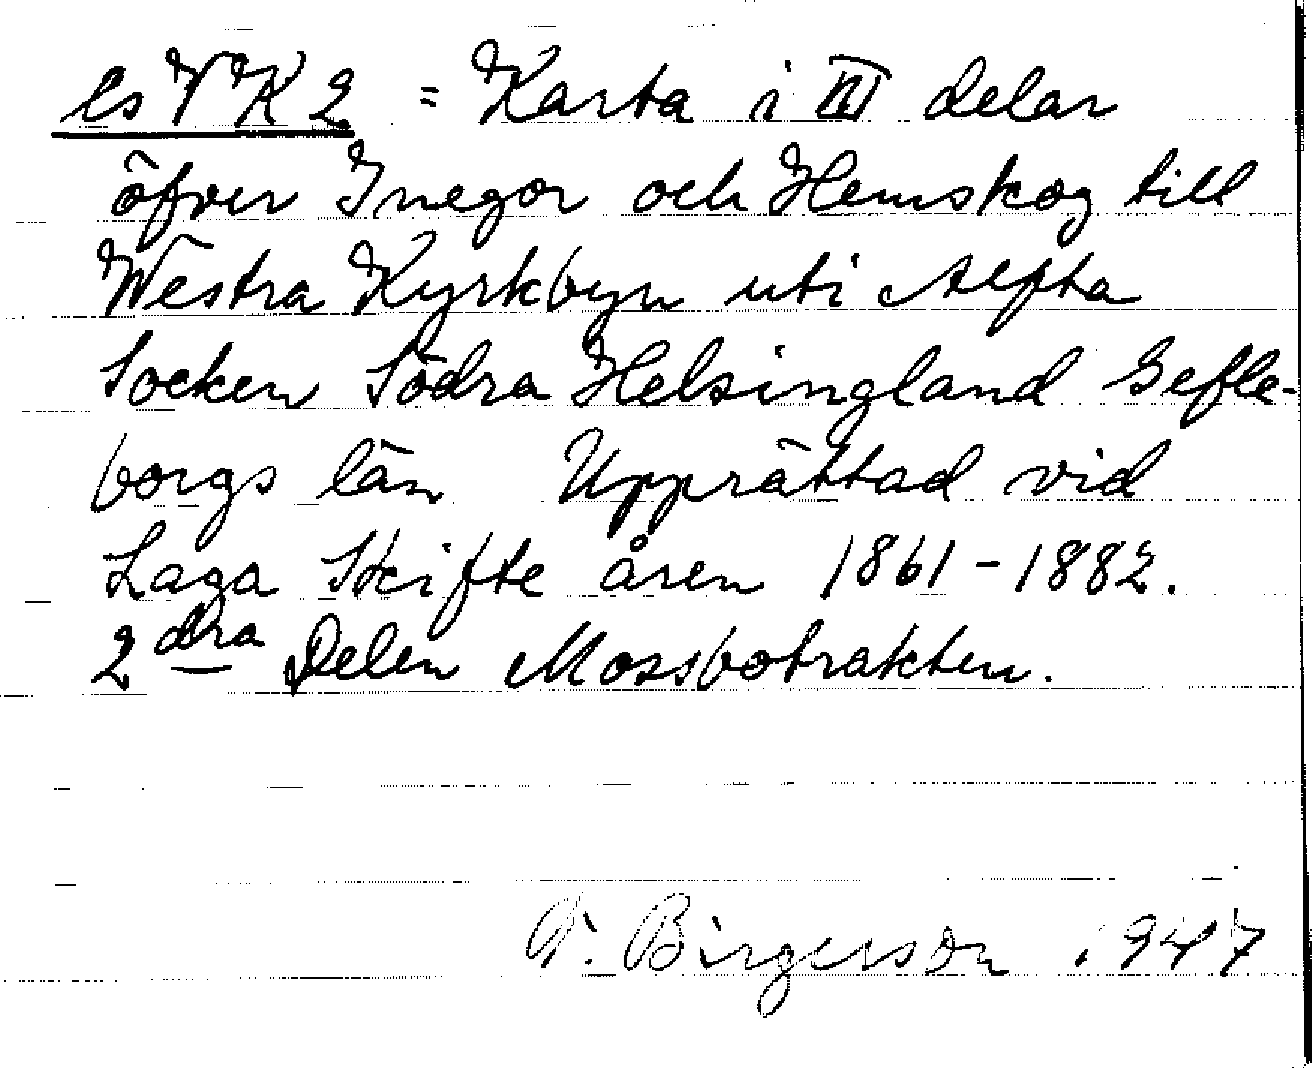 ls VK2 = Karta i III delar
öfver Inegor och Hemskog till
Westra Kyrkbyn uti Alfta
Socken Södra Helsingland Gefle-
borgs län Upprättad vid
Laga Skifte åren 1861-1882.
2dra Delen Mossbotrakten.
Birgerson 1947